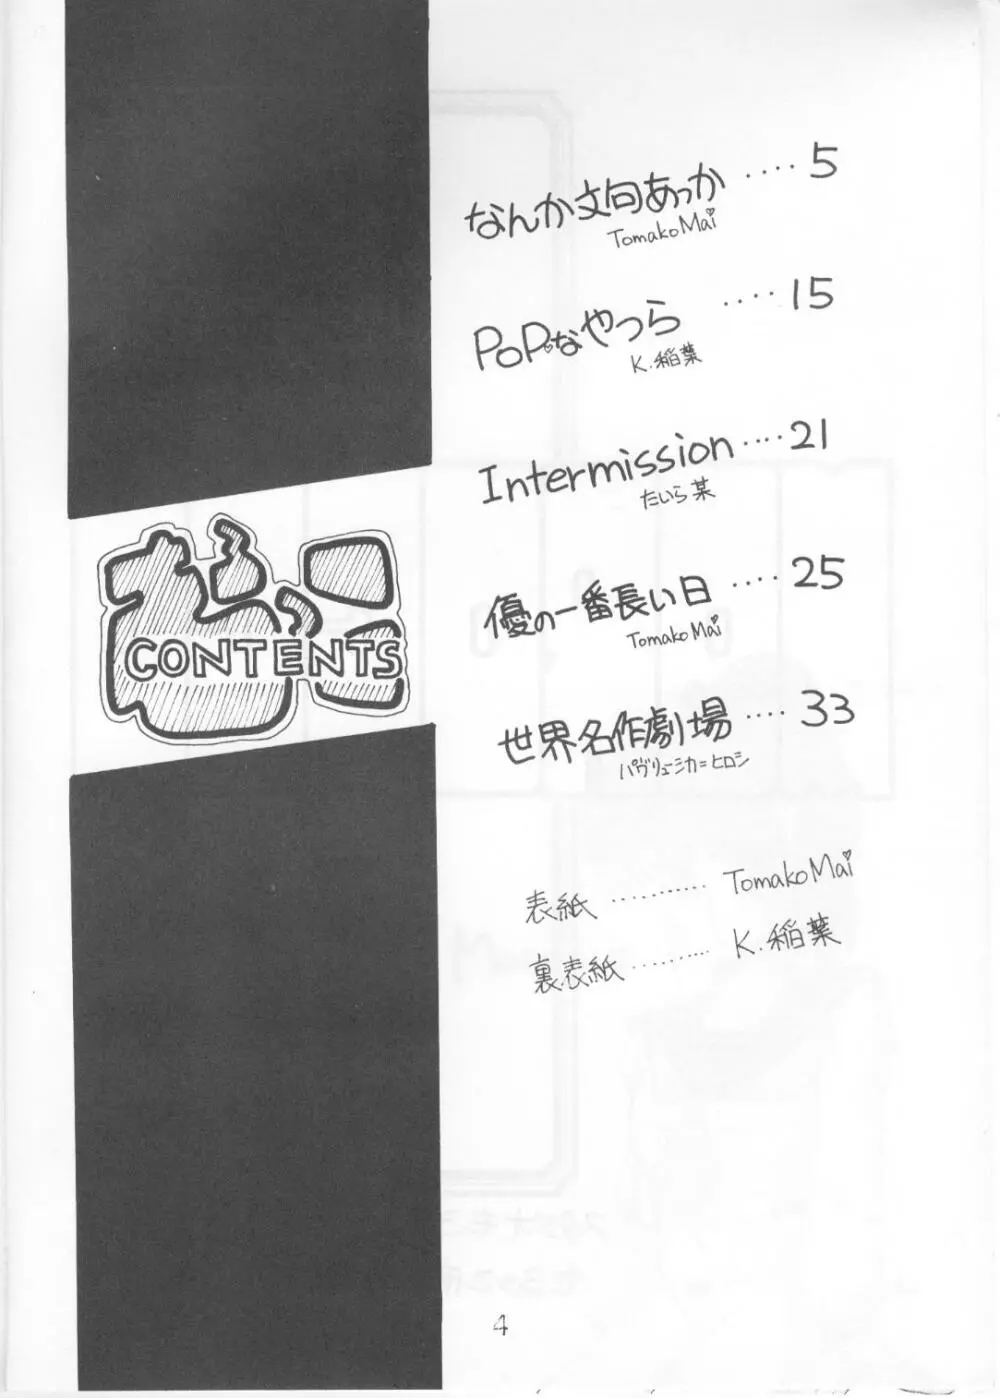 なんか文句あっか ‥‥ 5
TomakoMai
PoPなやつら ‥‥ 15
K.稲葉
Intermission ‥‥ 21
たいら某
優の一番長い日 ‥‥ 25
TomakoMai
世界名作劇場 ‥‥ 33
パヴリューシカ=ヒロシ
CONTENTS
表紙 ‥‥‥‥‥ TomakoMai
裏表紙 ‥‥‥‥‥ K.稲葉
4